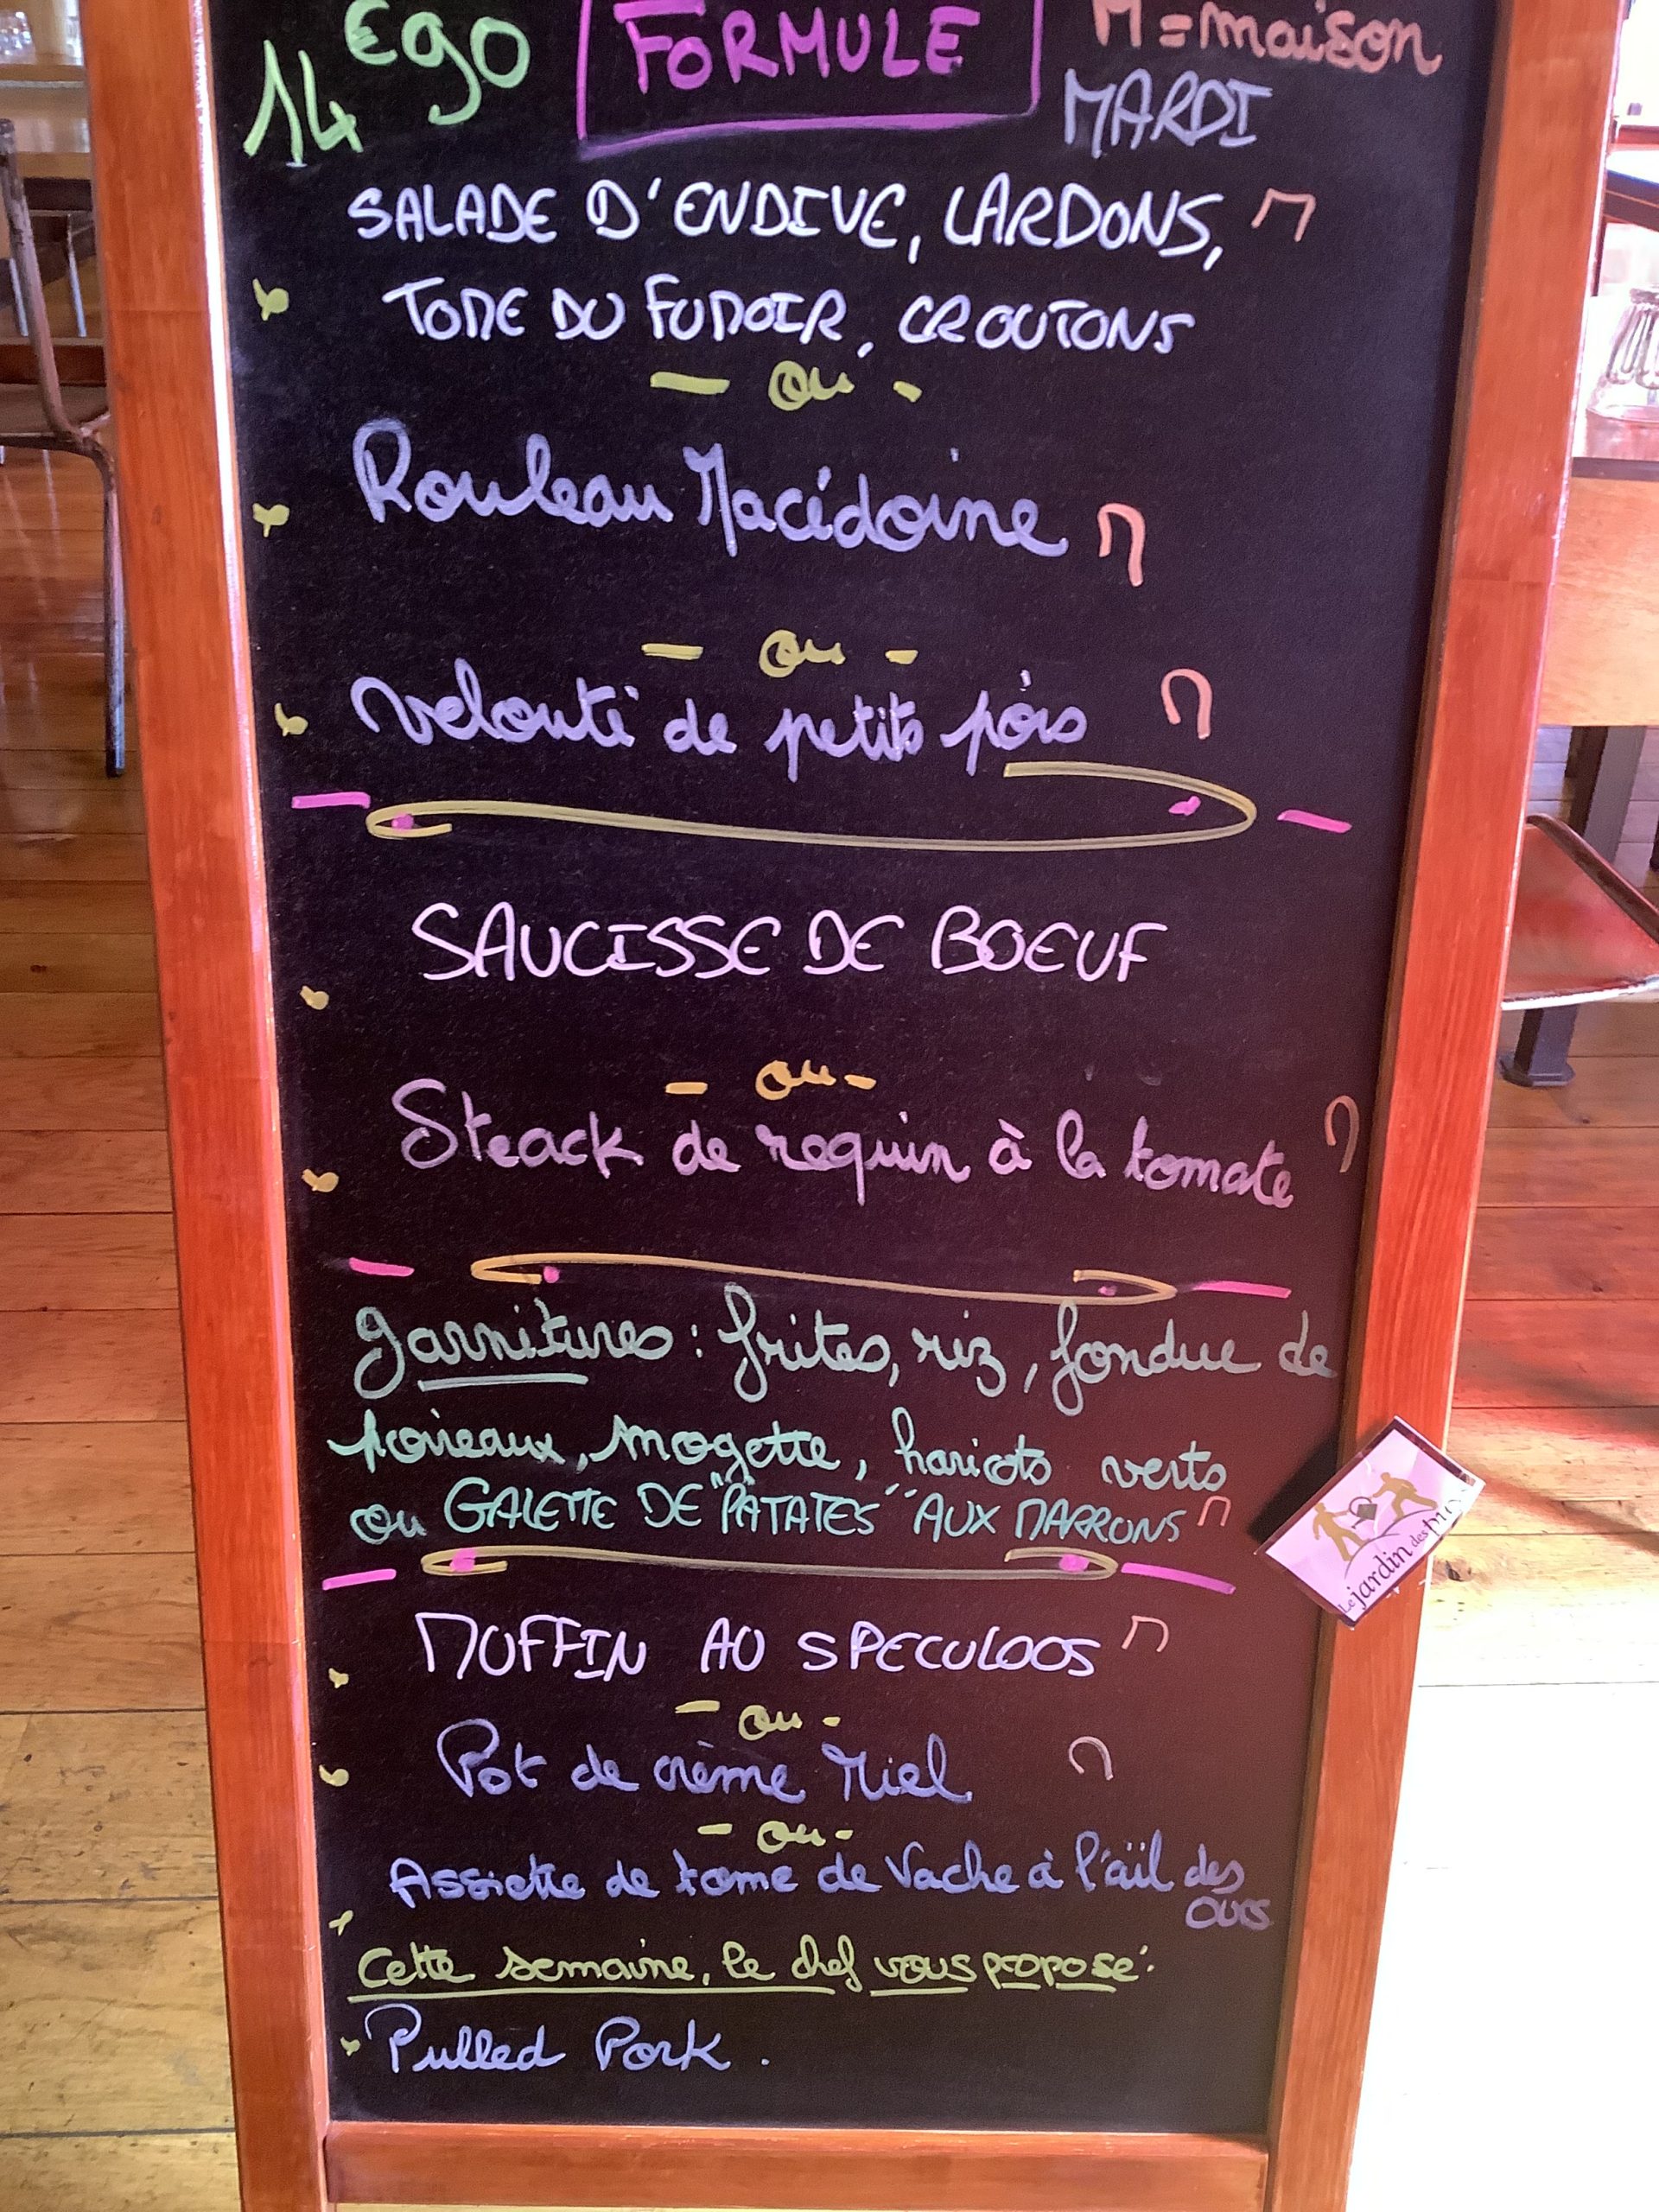 14 €go
FORMULE
M = maison
MARDI
SALADE D'ENDIVE, LARDONS, M
TOME DU FUMOIR, CROUTONS
- ou -
Rouleau Macédoine M
- ou -
velouté de petits pois M
SAUCISSE DE BOEUF
- ou -
Steack de requin à la tomate M
garnitures : frites, riz, fondue de
poireaux, mogette, haricots verts
ou GALETTE DE "PATATES" AUX MARRONS M
MUFFIN AU SPECULOOS M
- ou -
Pot de crème Miel M
- ou -
Assiette de tome de Vache à l'ail des
OURS
Cette semaine, le chef vous propose :
Pulled Pork .
Le jardin des